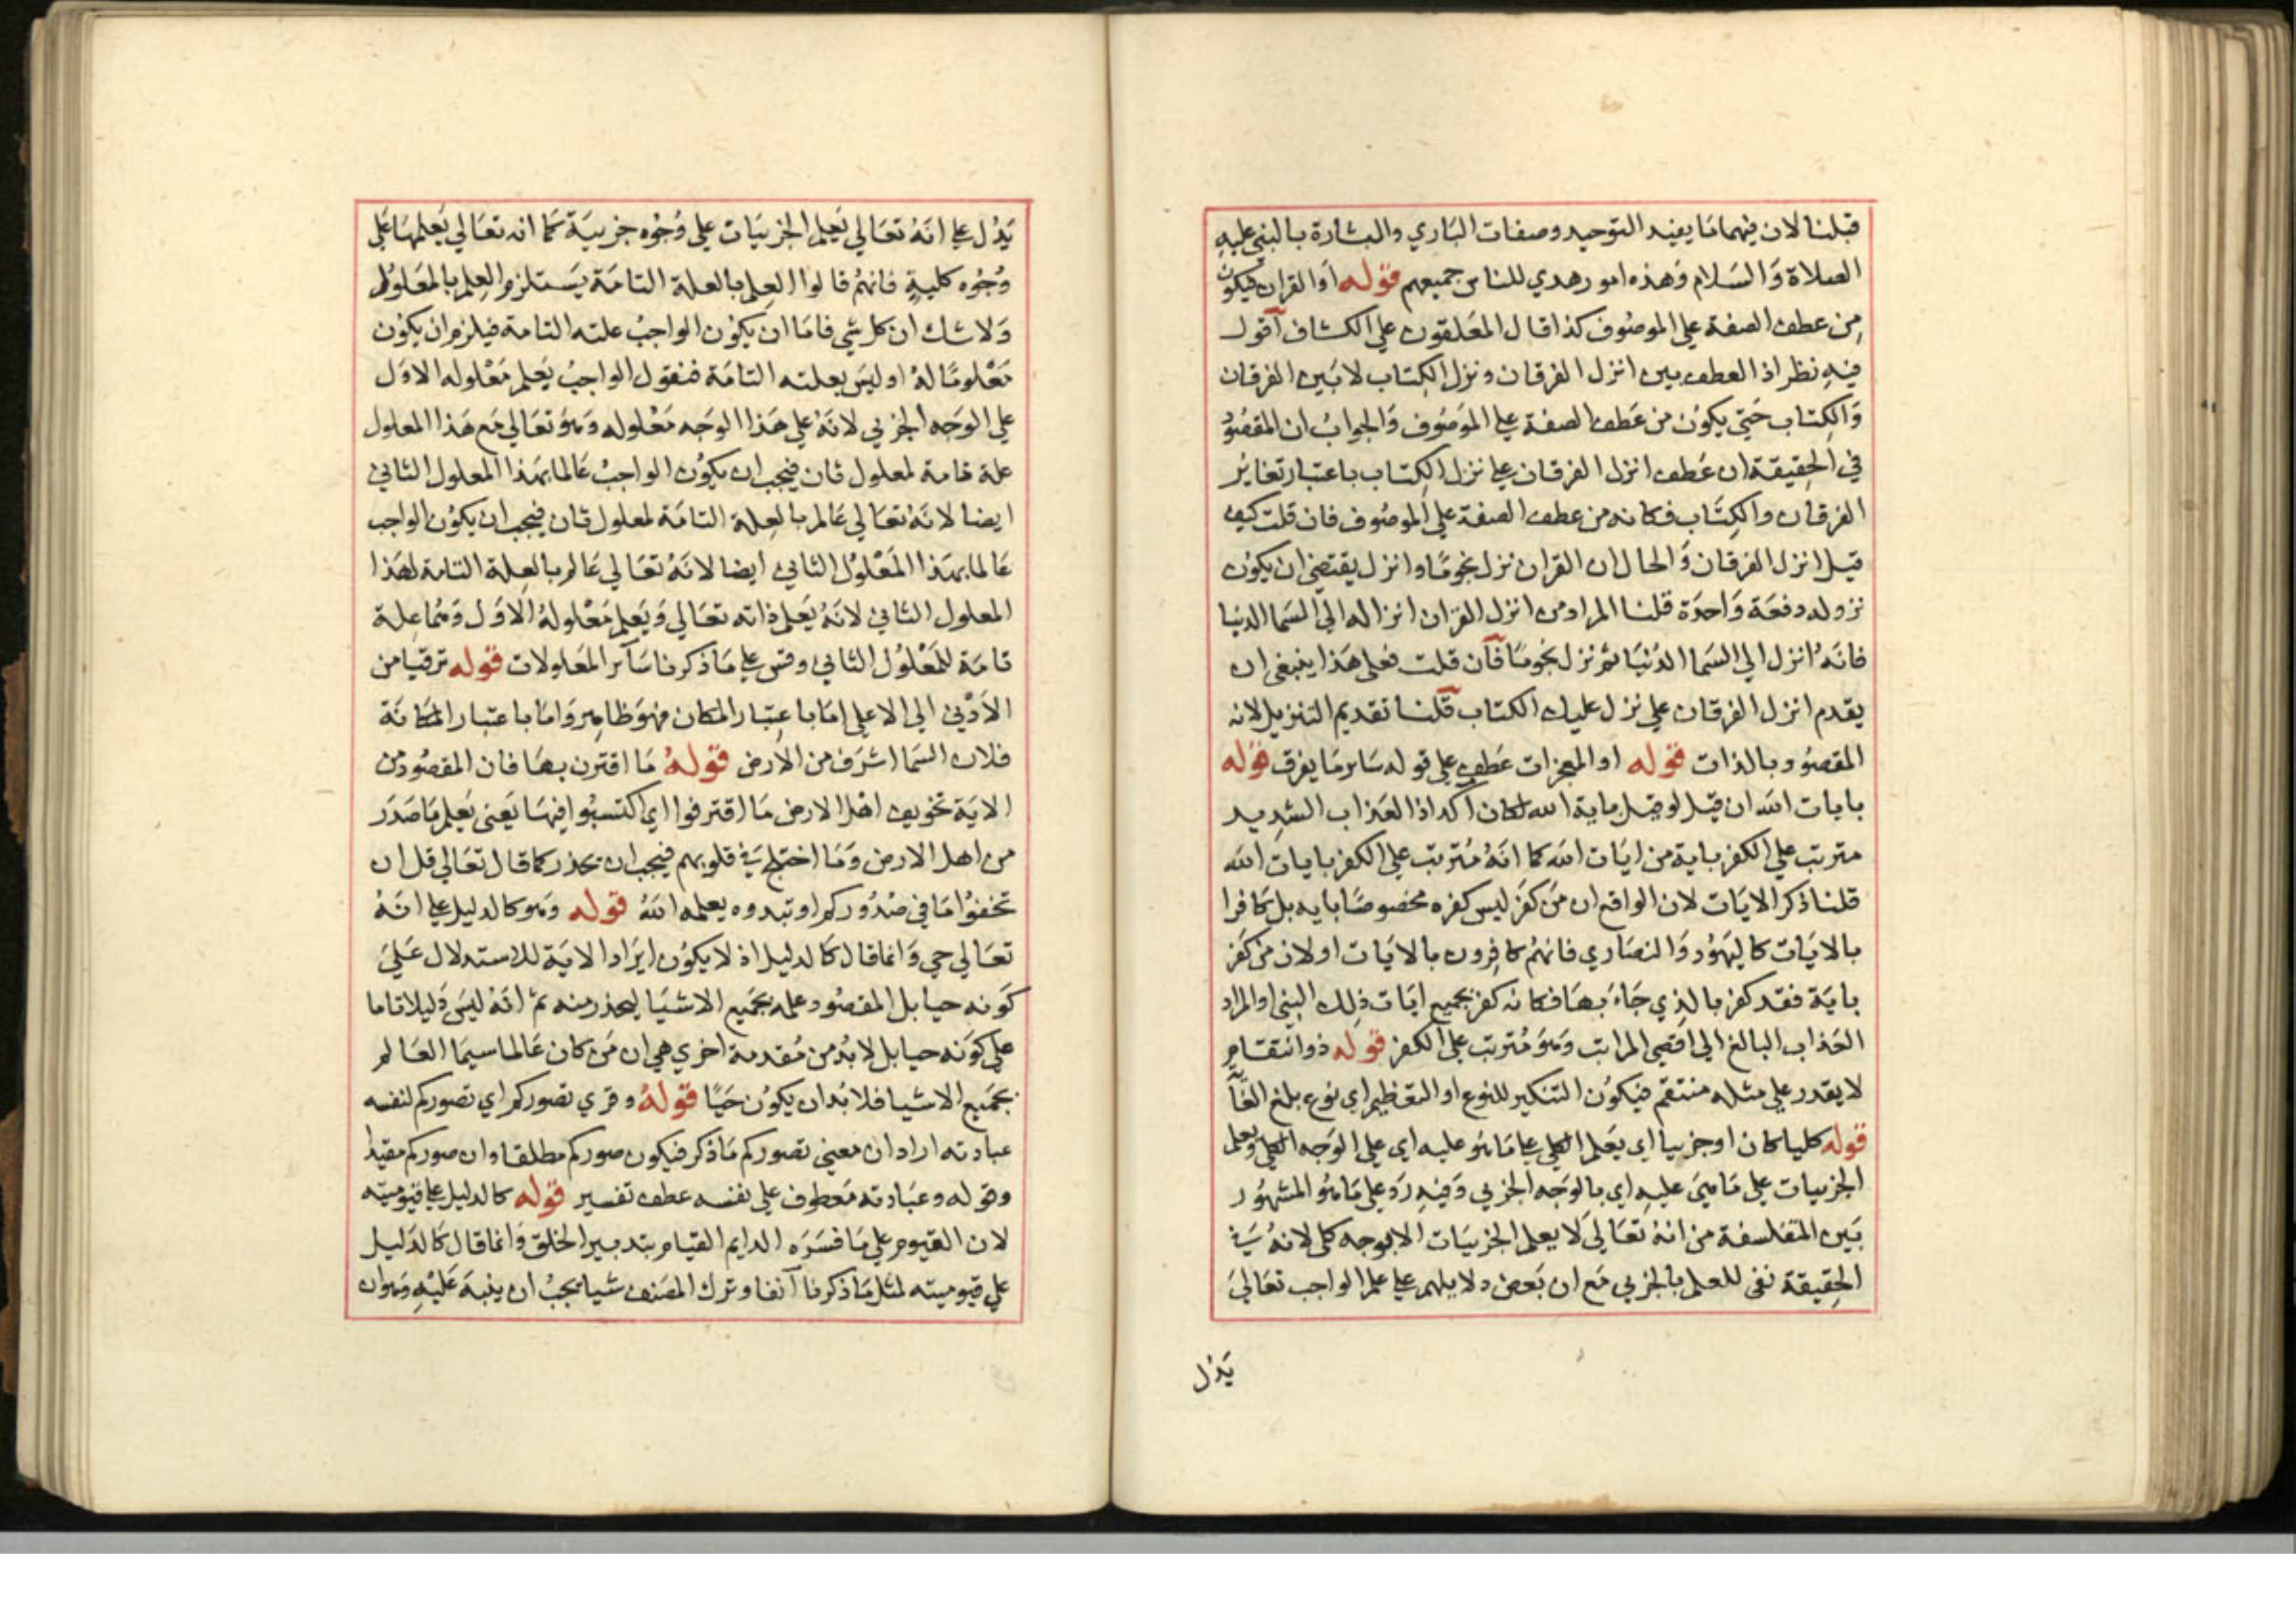 قبلنا لان فيهما ما يفيد التوحيد وصفات الباري والبشارة بالنبي عليه
الصلاة والسلام وهذه امور هدي للناس جميعهم قوله او القران فيكون
من عطف الصفة علي الموصوف كذا قال المعلقون علي الكشاف اقول
فيه نظر اذ العطف بين انزل الفرقان ونزل الكتاب لا بين الفرقان
والكتاب حتي يكون من عطف الصفة علي الموصوف والجواب ان المقصود
في الحقيقة ان عطف انزل الفرقان علي نزل الكتاب باعتبار تغاير
الفرقان والكتاب فكانه من عطف الصفة علي الموصوف فان قلت كيف
قيل انزل الفرقان والحال ان القران نزل نجوما وانزل يقتضي ان يكون
نزوله دفعة واحدة قلنا المراد من انزل القران انزاله الي السما الدنيا
فانه انزل الي السما الدنيا ثم نزل نجوما فان قلت فعلي هذا ينبغي ان
يقدم انزل الفرقان علي نزل عليك الكتاب قلنا تقديم التنزيل لانه
المقصود بالذات قوله او المعجزات عطف علي قوله ساير ما يفرق قوله
بايات الله ان قيل لو قيل باية الله لكان اكد اذ العذاب الشديد
مترتب علي الكفر باية من ايات الله كما انه مترتب علي الكفر بايات الله
قلنا ذكر الايات لان الواقع ان من كفر ليس كفره مخصوصا بايه بل كافرا
بالايات كاليهود والنصاري فانهم كافرون بالايات او لان من كفر
باية فقد كفر بالذي جاء بها فكانه كفر بجميع ايات ذلك النبي او المراد
العذاب البالغ الي اقصي المراتب وهو مترتب علي الكفر قوله ذو انتقام
لا يقدر علي مثله منتقم فيكون التنكير للنوع او التعظيم اي نوع بلغ
قوله كليا كان او جزييا اي يعلم الكلي علي ما هو عليه اي علي الوجه الكلي ويعلم
الجزييات علي ما هي عليه اي بالوجه الجزيي وفيه رد علي ما هو المشهور
بين المتفلسفة من انه تعالي لا يعلم الجزييات الا بوجه كلي لانه في
الحقيقة نفي للعلم بالجزيي مع ان بعض دلايلهم علي علم الواجب تعالي
يدل
يدل علي انه تعالي يعلم الجزييات علي وجوه جزيية كما انه تعالي يعلمها علي
وجوه كلية فانهم قالوا العلم بالعلة التامة يستلزم العلم بالمعلول
ولا شك ان كل شي فاما ان يكون الواجب علته التامة فيلزم ان يكون
معلوما له او ليس بعلته التامة فنقول الواجب يعلم معلوله الاول
علي الوجه الجزيي لانه علي هذا الوجه معلوله وهو تعالي مع هذا المعلول
علة تامة لمعلول ثان فيجب ان يكون الواجب عالما بهذا المعلول الثاني
ايضا لانه تعالي عالم بالعلة التامة لمعلول ثان فيجب ان يكون الواجب
عالما بهذا المعلول الثاني ايضا لانه تعالي عالم بالعلة التامة لهذا
المعلول الثاني لانه يعلم ذاته تعالي ويعلم معلوله الاول وهما علة
تامة للمعلول الثاني وقس علي ما ذكرنا ساير المعلولات قوله ترقيا من
الادني الي الاعلي اما باعتبار المكان فهو ظاهر واما باعتبار المكانة
فلان السما اشرف من الارض قوله ما اقترن بها فان المقصود من
الاية تخويف اهل الارض ما اقترفوا اي اكتسبوا فيها يعني يعلم ما صدر
من اهل الارض وما اختلج في قلوبهم فيجب ان يحذر كما قال تعالي قل ان
تخفوا ما في صدوركم او تبدوه يعلمه الله قوله وهو كالدليل علي انه
تعالي حي وانما قال كالدليل اذ لا يكون ايراد الاية للاستدلال علي
كونه حيا بل المقصود علمه بجميع الاشيا ليحذر منه ثم انه ليس دليلا تاما
علي كونه حيا بل لا بد من مقدمة اخري هي ان من كان عالما سيما العالم
بجميع الاشيا فلا بد ان يكون حيا قوله وقري تصوركم اي تصوركم لنفسه
عبادته اراد ان معني تصوركم ما ذكر فيكون صوركم مطلقا وان صوركم مقيدا
وقوله وعبادته معطوف علي نفسه عطف تفسير قوله كالدليل علي قيوميته
لان القيوم علي ما فسره الدايم القيام بتدبير الخلق وانما قال كالدليل
علي قيوميته لمثل ما ذكرنا آنفا وترك المصنف شيا يجب ان ينبه عليه وهو ان